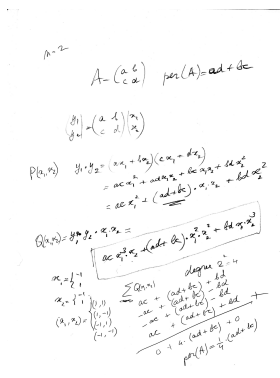 n=2
A=(a b
c d) per(A)=ad+bc
(y1
y2)=(a b
c d)(x1
x2)
P(x1,x2) y1·y2=(ax1+bx2)(cx1+dx2)
=acx1²+adx1x2+bcx1x2+bdx2²
=acx1²+(ad+bc)·x1·x2+bdx2²
Q(x1,x2)=y1·y2·x1·x2=
acx1³x2+(ad+bc)·x1²·x2²+bdx1·x2³
degree 2·2=4
x1={-1
1
x2={-1
1
(x1,x2)={(1,1)
(1,-1)
(-1,1)
(-1,-1)
∑Q(x1,x2)
ac+(ad+bc)+bd
-ac+(ad+bc)-bd
-ac+(ad+bc)-bd
ac+(ad+bc)+bd +
0+4·(ad+bc)+0
per(A)=1/4(ad+bc)